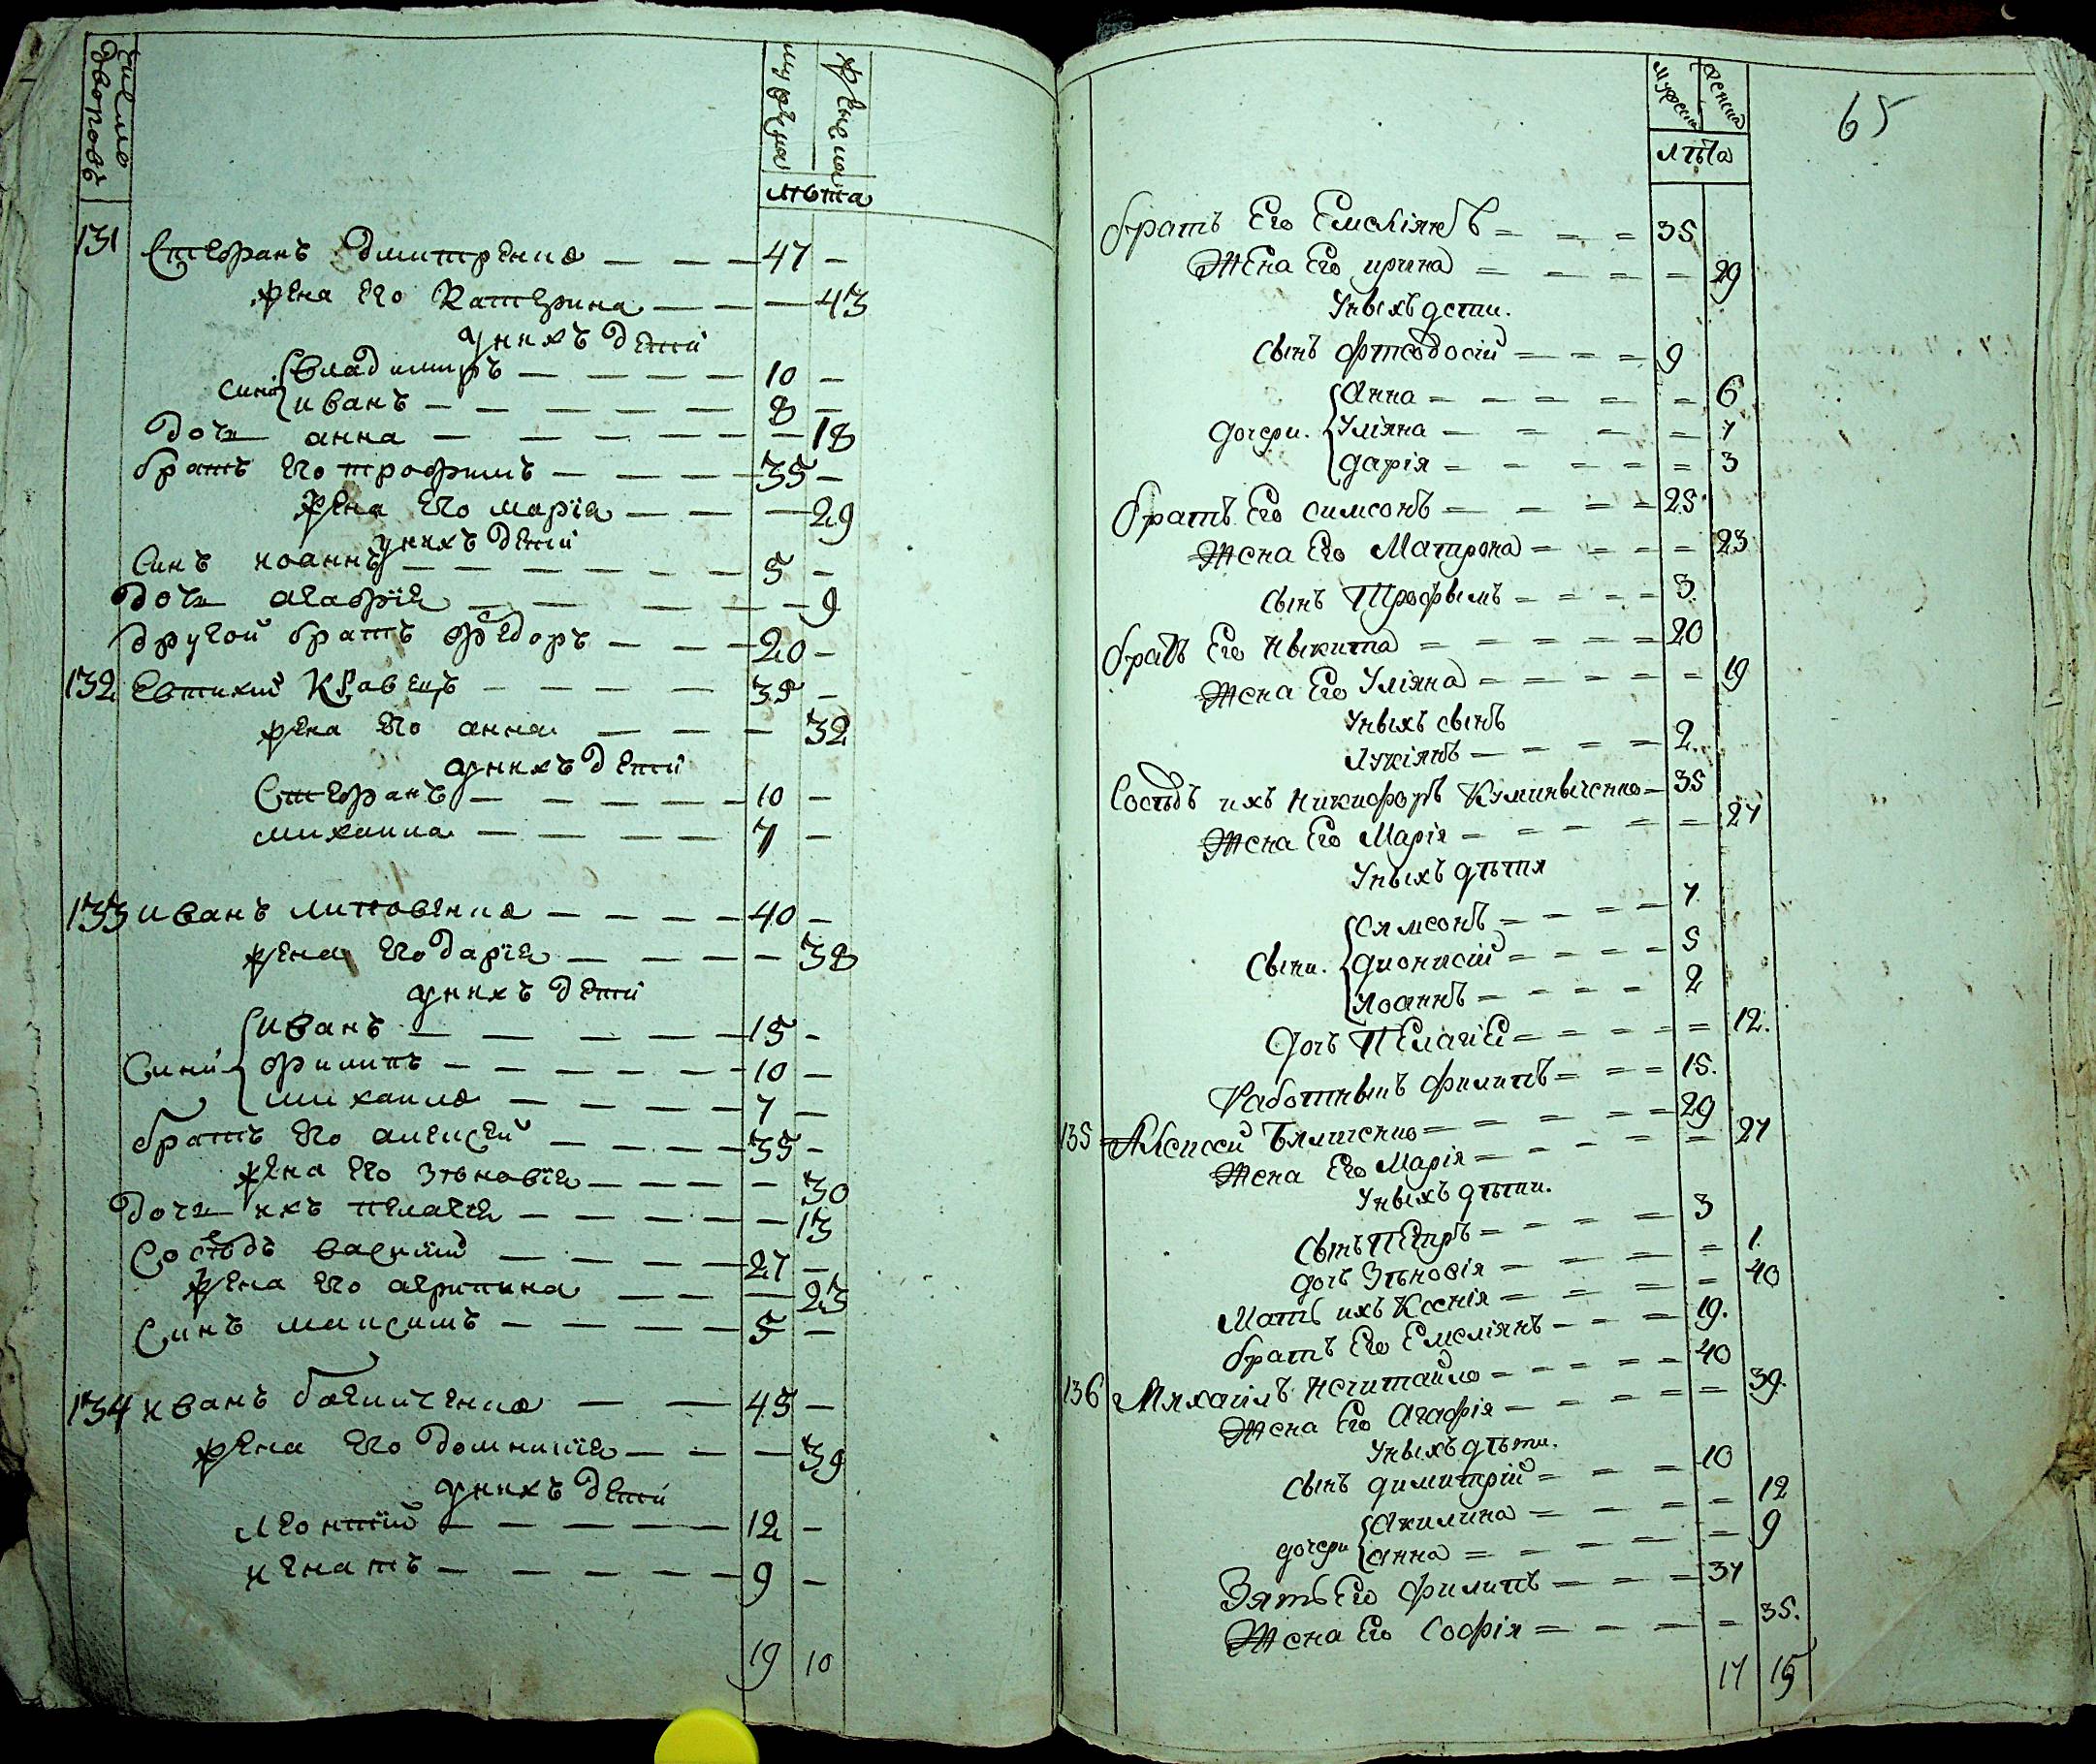 Число дворовъ
мужеска
женска
лѣта
131 Стефанъ Дмитренко — — — 47 —
жена Его Катерина — — — 43
унихъ дети
Сини Владимиръ — — — — 10 —
иванъ — — — — — — 8 —
дочь анна — — — — — — 18
братъ Его трофимъ — — — — 35 —
жена Его марія — — — 29
унихъ дети
Синъ иоаннъ — — — — — — 5 —
дочь агафія — — — — — 9
другой братъ Федоръ — — — 20 —
132 Евтихий Кравецъ — — — — 35 —
жена Его анна — — — 32
унихъ дети
Стефанъ — — — — — — 10 —
михаила — — — — — 7 —
133 иванъ литовченко — — — — 40 —
жена Его дарія — — — — 38
унихъ дети
Сини иванъ — — — — — 15 —
филипъ — — — — — — 10 —
михаило — — — — — 7 —
братъ Его алексей — — — — 35 —
жена Его Зѣновія — — — — — 30
дочь ихъ пелагея — — — — — 13
Сосѣдъ василій — — — — 27 —
жена Его агрипина — — — 23
Синъ максимъ — — — — — 5 —
134 иванъ — — 45 —
жена Его домникія — — — 39
унихъ дети
леонтій — — — — — — 12 —
игнатъ — — — — — — 9 —
19 10
65
Мужеска
Женска
лѣта
братъ Его Емеліянъ = — = 35
Жена Его ирина = = = = — 29
Унвихъ дети.
сынъ Фтеодосій = — = = 9
дочери. Анна = — = = — = 6
Уліяна — — = = — = 7
дарія = — = = = 3
братъ Его симсонъ = — = = = 25
Жена Его Матрона = — = = — 23
сынъ Трофвимъ = — = — = 3.
братъ Его Нвикита = — — = — = 20
Жена Его Уліяна = — = = = — 19
Унвихъ свинъ
Лукіянъ — — = — = 2.
Сосѣдъ ихъ Никифоръ — 35
Жена Его Марія — — = — = — 27
Унвихъ дѣтия
Свини. Сямсонъ — — = — — 7.
дионисій = — = — — 5
Иоаннъ — — = — — 2
дочь ПЕлагіЕ = = — = — = 12.
Работнвикъ филипъ = — = = 15.
135 Алексей = — = = — = 29
Жена Его Марія = — = — = — 27
Унвихъ дѣти.
Свинъ ПЕтръ — — = — = 3
дочь Зѣновія = — = — = 1.
Мать ихъ Ксенія = — = — = 40
братъ Его Емеліянъ — — = — 19.
136 Мяхаилъ нечитайло = — = — = 40
Жена Его Агафія = — = — = — 39.
Унвихъ дѣти.
Свинъ димитрій = — = — = 10
дочери Акилина = — = — = 12
Анна = — = — — = 9
Зять Его филипъ = — = — = 37
Жена Его Софія = — = — = — 35.
17 15